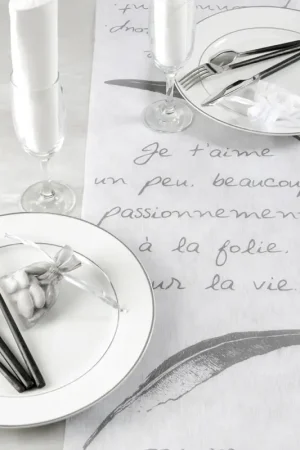 Je t'aime
un peu, beaucoup
passionnément
à la folie.
sur la vie.